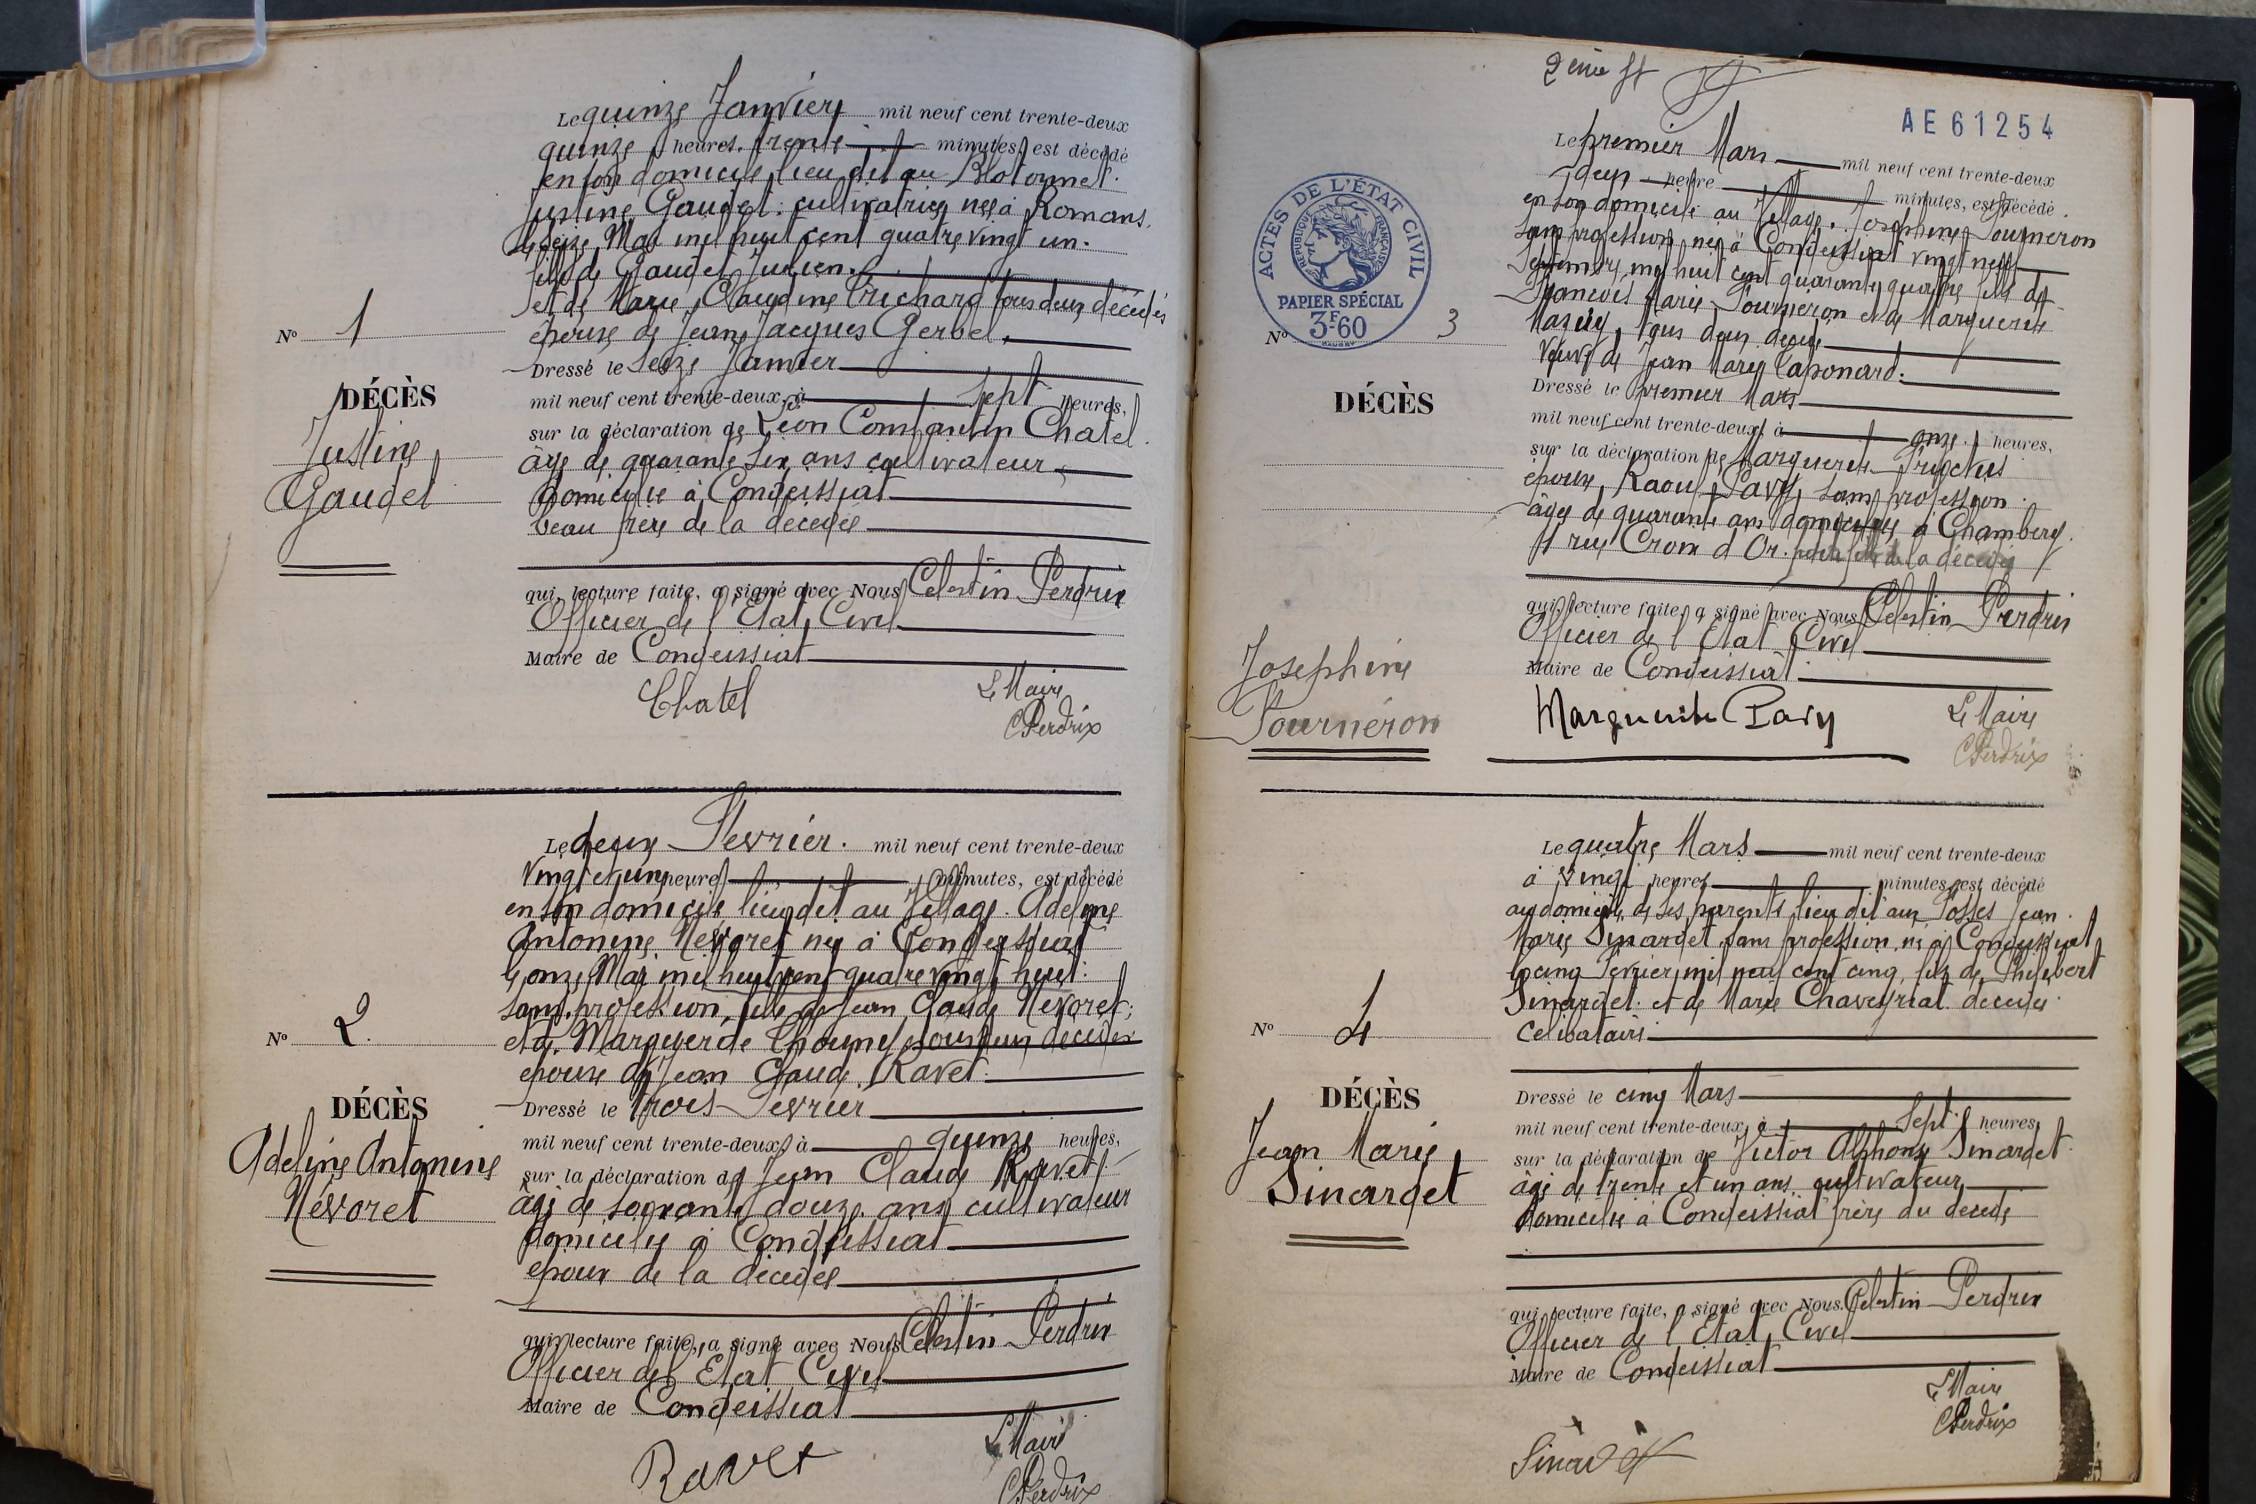 Le quinze Janvier mil neuf cent trente-deux
quinze heures trente minutes, est décédé
en son domicile lieu dit au
Justine Gaudet. cultivatrice née à Romans.
le seize Mai mil huit cent quatre vingt un.
fille de Gaudet Julien.
et de Marie Claudine Trichard tous deux décédés
épouse de Jean Jacques Gerbel.
Dressé le Seize Janvier
mil neuf cent trente-deux, à sept heures,
sur la déclaration de Léon Constantin Chatel.
âgé de quarante six ans cultivateur
domicilié à Condeissiat
beau frère de la décédée
qui, lecture faite, a signé avec Nous Celestin Perdrix
Officier de l'Etat Civil
Maire de Condeissiat
Chatel
Le Maire
CPerdrix
N° 1
DÉCÈS
Justine
Gaudet
Le deux Fevrier. mil neuf cent trente-deux
Vingt et une heures minutes, est décédé
en son domicile lieu dit au Village. Adeline
Antonine Névoret née à Condeissiat
le onze Mai mil huit cent quatre vingt huit.
sans profession, fille de Jean Claude Névoret
et de Marguerite tous deux décédés
épouse de Jean Claude Ravet.
Dressé le trois Fevrier
mil neuf cent trente-deux, à quinze heures,
sur la déclaration de Jean Claude Ravet
âgé de soixante douze ans cultivateur
domicilié à Condeissiat
epoux de la décédée
qui, lecture faite, a signé avec Nous Celestin Perdrix
Officier de l'Etat Civil
Maire de Condeissiat
Ravet
Le Maire
CPerdrix
N° 2.
DÉCÈS
Adeline Antonine
Névoret
2eme ft
AE 61254
ACTES DE L'ÉTAT CIVIL
RÉPUBLIQUE FRANÇAISE
PAPIER SPÉCIAL
3F.60
Le premier Mars mil neuf cent trente-deux
deux heure minutes, est décédé
en son domicile au Village. Joséphine Tourneron
sans profession née à Condeissiat vingt neuf
Septembre mil huit cent quarante quatre fille de
François Marie Tourneron et de Marguerite
Mazuy, tous deux
Veuve de Jean Marie Laponard.
Dressé le premier Mars
mil neuf cent trente-deux, à onze heures,
sur la déclaration de Marguerite
épouse Raoul Pavy, sans profession
âgée de quarante ans domiciliée à Chambery
rue Croix d'Or. de la décédée
qui, lecture faite, a signé avec Nous Celestin Perdrix
Officier de l'Etat Civil
Maire de Condeissiat
Marguerite Pavy
Le Maire
CPerdrix
N° 3
DÉCÈS
Josephine
Tourneron
Le quatre Mars mil neuf cent trente-deux
à vingt heures minutes, est décédé
au domicile de ses parents lieu dit aux Fosses Jean
Marie Sinardet sans profession né à Condeissiat
le cinq Fevrier mil neuf cent cinq fils de Philibert
Sinardet. et de Marie Chaveyriat décédée
celibataire
Dressé le cinq Mars
mil neuf cent trente-deux, à Sept heures,
sur la déclaration de Victor Alphonse Sinardet
âgé de trente et un ans cultivateur
domicilié à Condeissiat frère du décédé
qui, lecture faite, a signé avec Nous Celestin Perdrix
Officier de l'Etat Civil
Maire de Condeissiat
Le Maire
CPerdrix
Sinardet
N° 4
DÉCÈS
Jean Marie
Sinardet